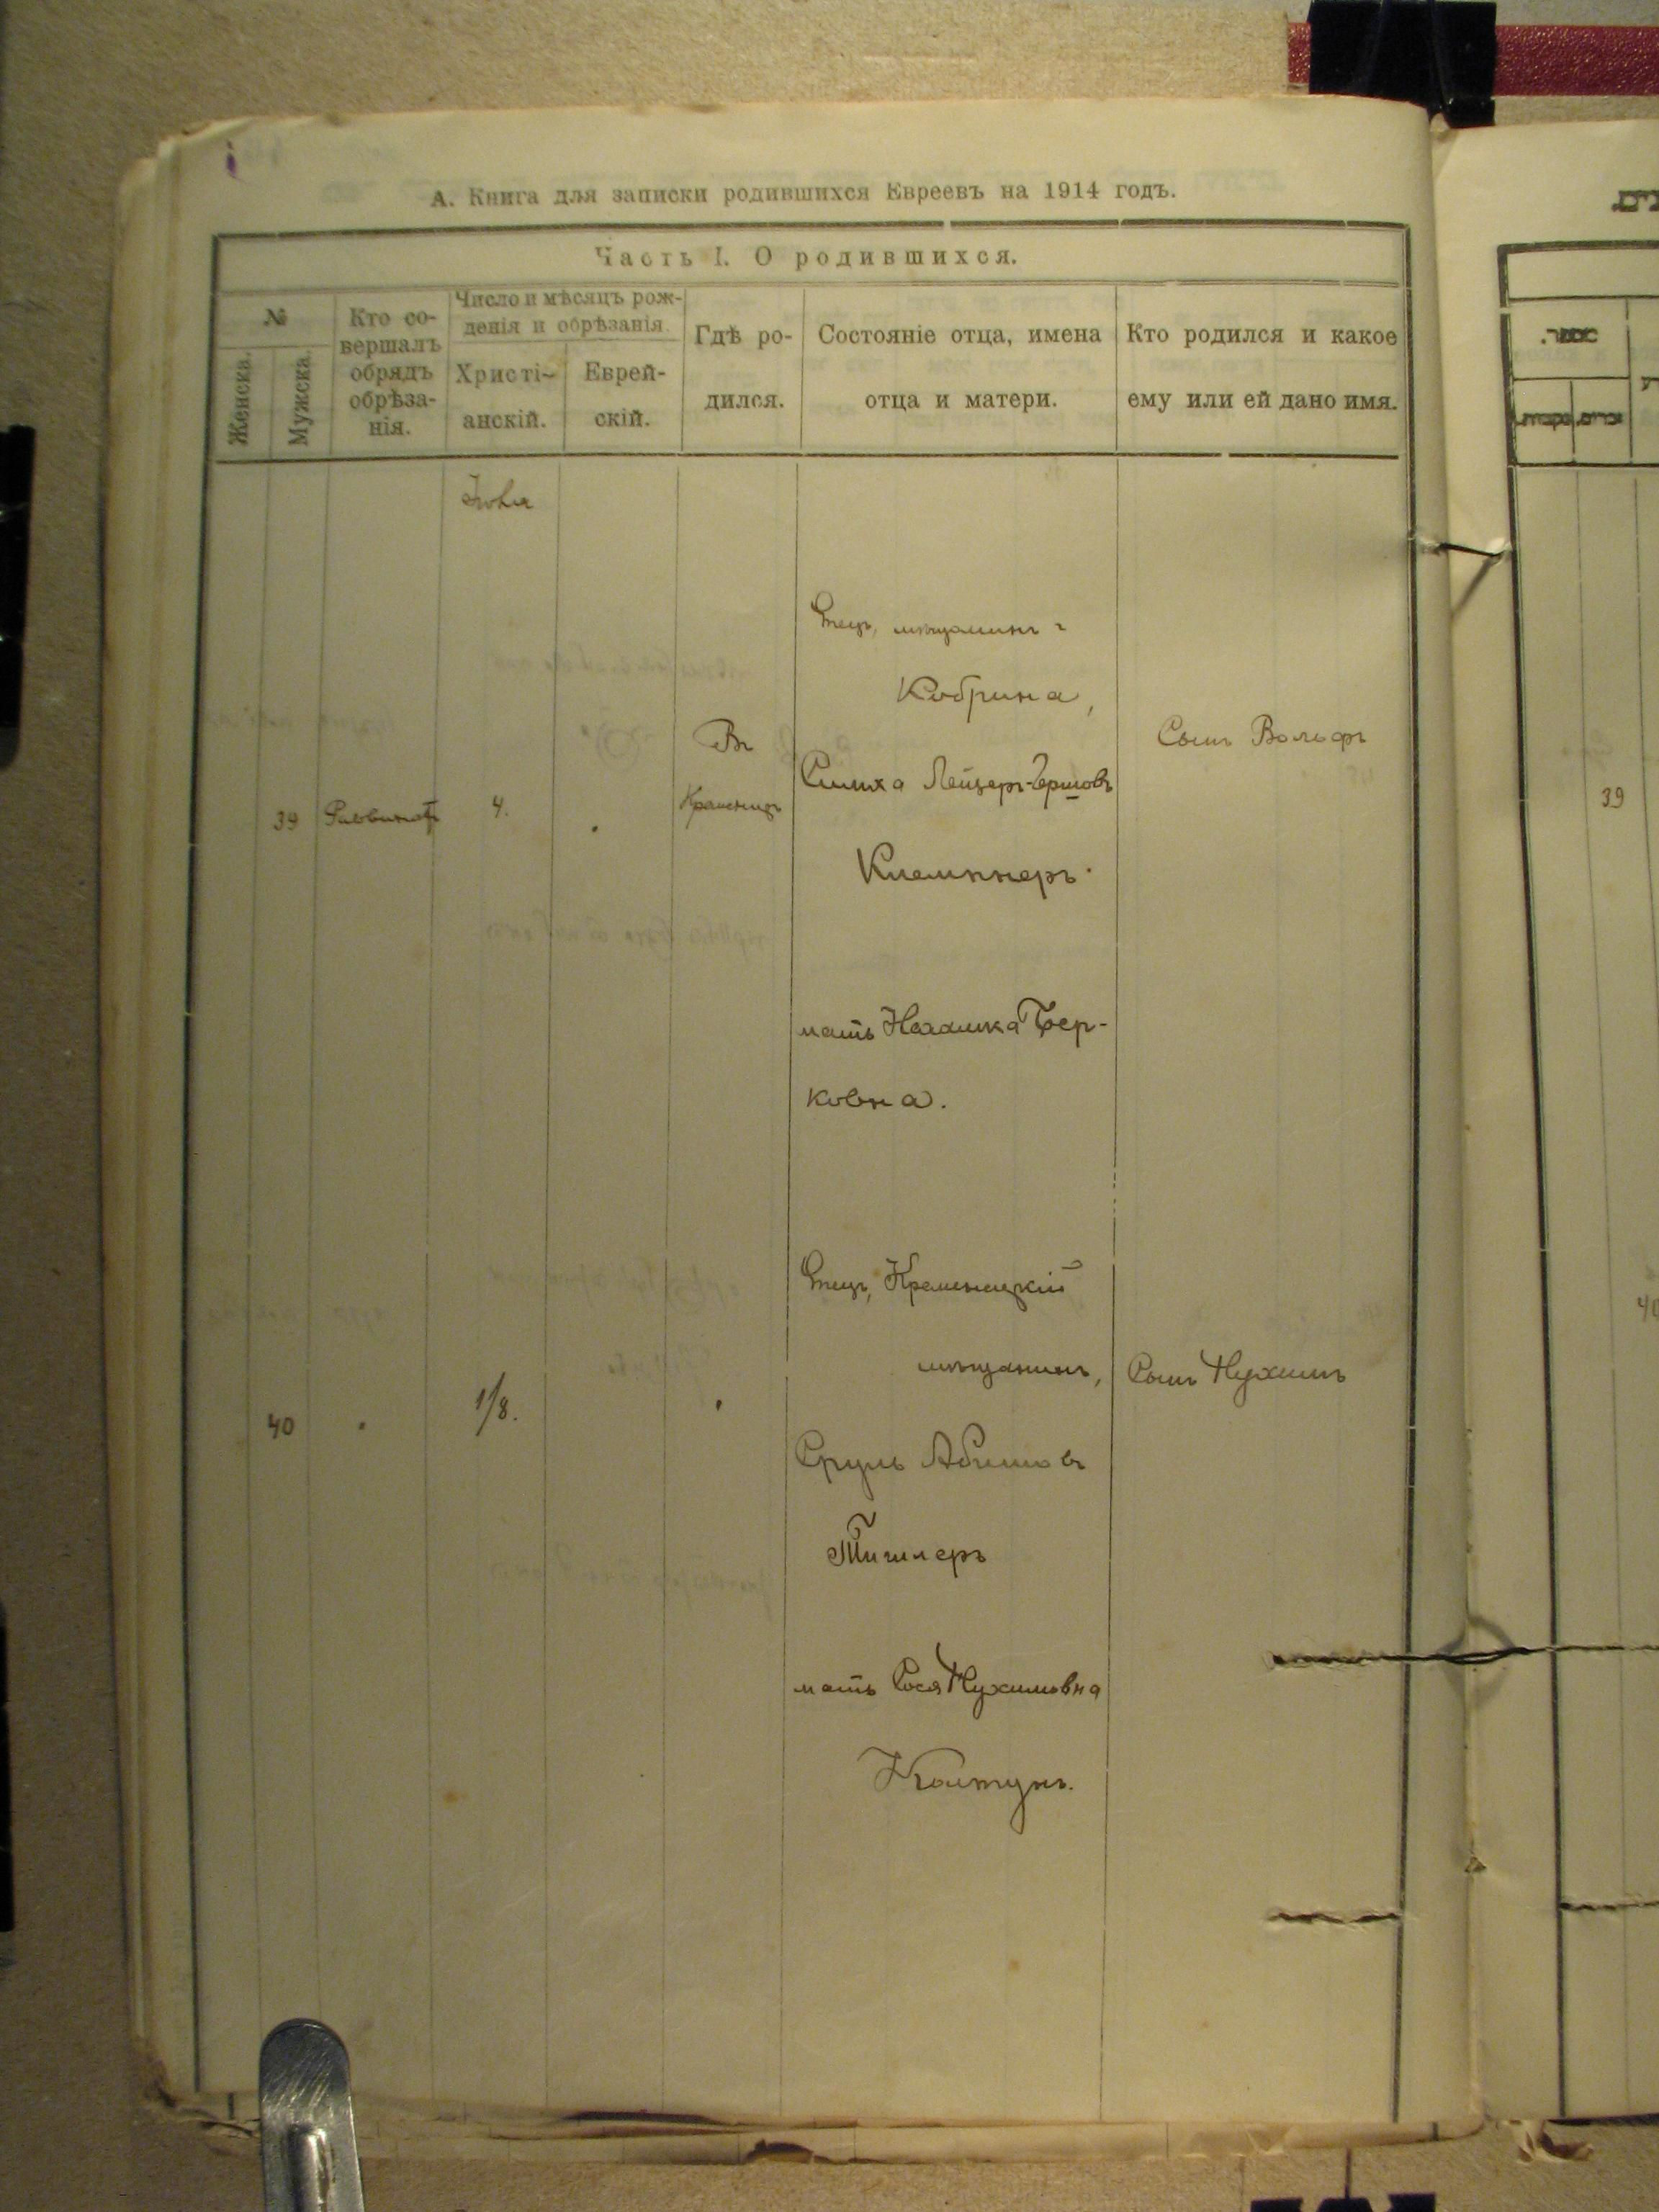 А. Книга для записки родившихся Евреевъ на 1914 годъ.
Часть I. О родившихся.
№
Женска.
Мужска.
Кто со-
вершалъ
обрядъ
обрѣза-
нія.
Число и мѣсяцъ рож-
денія и обрѣзанія.
Христі-
анскій.
Еврей-
скій.
Гдѣ ро-
дился.
Состояніе отца, имена
отца и матери.
Кто родился и какое
ему или ей дано имя.
39
4.
Въ
Кременцѣ
Отецъ, мѣщанинъ г
Кобрина,
Симха Лейзеръ-Гершовъ
Клемпнеръ.
мать Бер-
ковна.
Сынъ Вольфъ
40
1/8.
Отецъ, Кременецкій
мѣщанинъ,
Сруль Абрамовъ
Тишлеръ
мать Сося Нухимовна
Колтунъ.
Сынъ Нухимъ
39
40